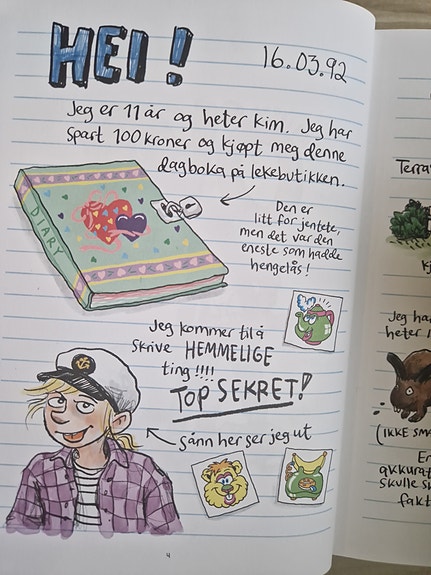 HEI!
16.03.92
Jeg er 11 år og heter Kim. Jeg har
spart 100 kroner og kjøpt meg denne
dagboka på lekebutikken.
DIARY
Den er
litt for jentete,
men det var den
eneste som hadde
hengelås!
Jeg kommer til å
skrive HEMMELIGE
ting!!!!
TOP SEKRET!
sånn her ser jeg ut
4
Terra
kj
Jeg ha
heter
(IKKE SM
E
akkurat
skulle s
fakt